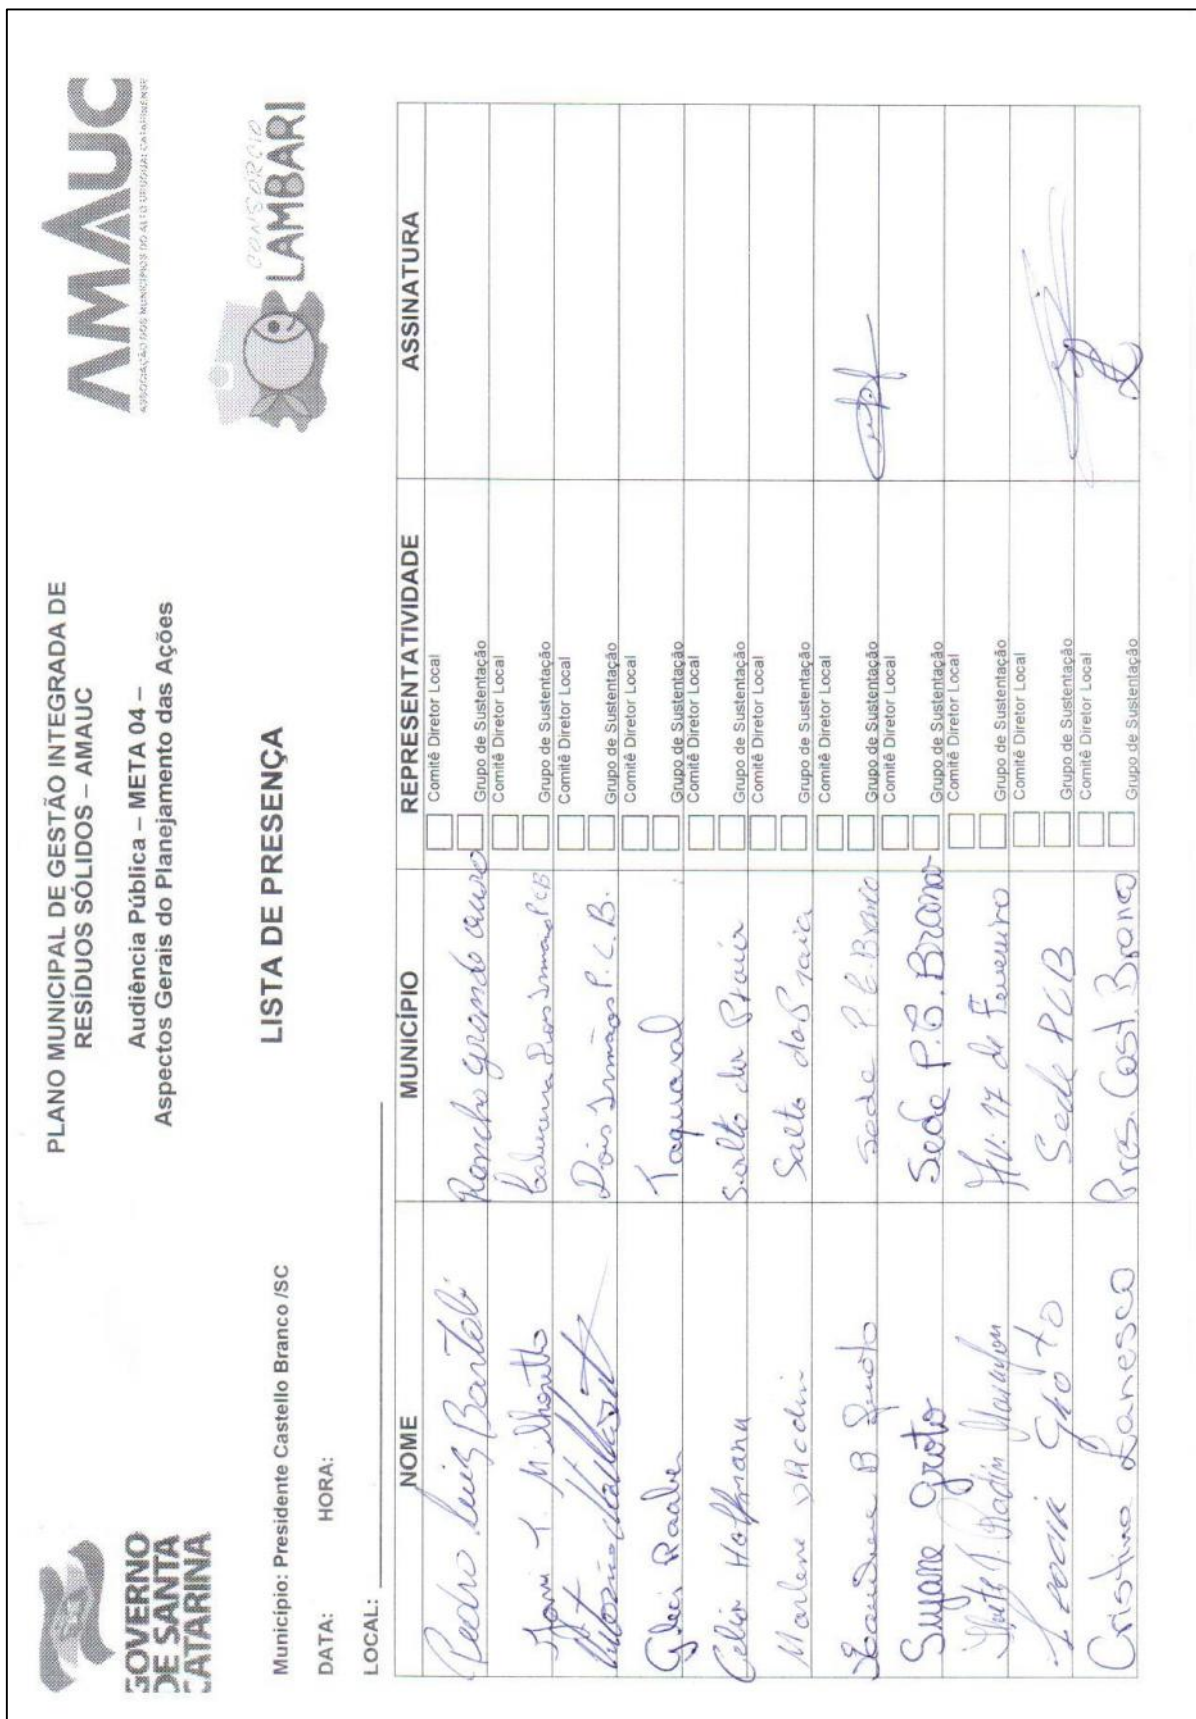 GOVERNO
DE SANTA
CATARINA
PLANO MUNICIPAL DE GESTÃO INTEGRADA DE
RESÍDUOS SÓLIDOS – AMAUC
Audiência Pública – META 04 –
Aspectos Gerais do Planejamento das Ações
AMAUC
ASSOCIAÇÃO DOS MUNICÍPIOS DO ALTO URUGUAI CATARINENSE
CONSÓRCIO
LAMBARI
LISTA DE PRESENÇA
Município: Presidente Castello Branco /SC
DATA: HORA:
LOCAL:
NOME MUNICÍPIO REPRESENTATIVIDADE ASSINATURA
Pedro Luiz Bartoli Rancho grande
Comitê Diretor Local
Grupo de Sustentação
T. Dois Irmãos PCB
Comitê Diretor Local
Grupo de Sustentação
Dois Irmãos P.C.B.
Comitê Diretor Local
Grupo de Sustentação
Raabe Taquaral
Comitê Diretor Local
Grupo de Sustentação
Celia Hoffmann Salto da Praia
Comitê Diretor Local
Grupo de Sustentação
Marlene Radin Salto da Praia
Comitê Diretor Local
Grupo de Sustentação
B Sede P.C. Branco
Comitê Diretor Local
Grupo de Sustentação
Suyane Groto Sede P.C. Branco
Comitê Diretor Local
Grupo de Sustentação
Radin AV: 17 de Fevereiro
Comitê Diretor Local
Grupo de Sustentação
Groto Sede PCB
Comitê Diretor Local
Grupo de Sustentação
Cristina Lanesco Pres. Cast. Branco
Comitê Diretor Local
Grupo de Sustentação